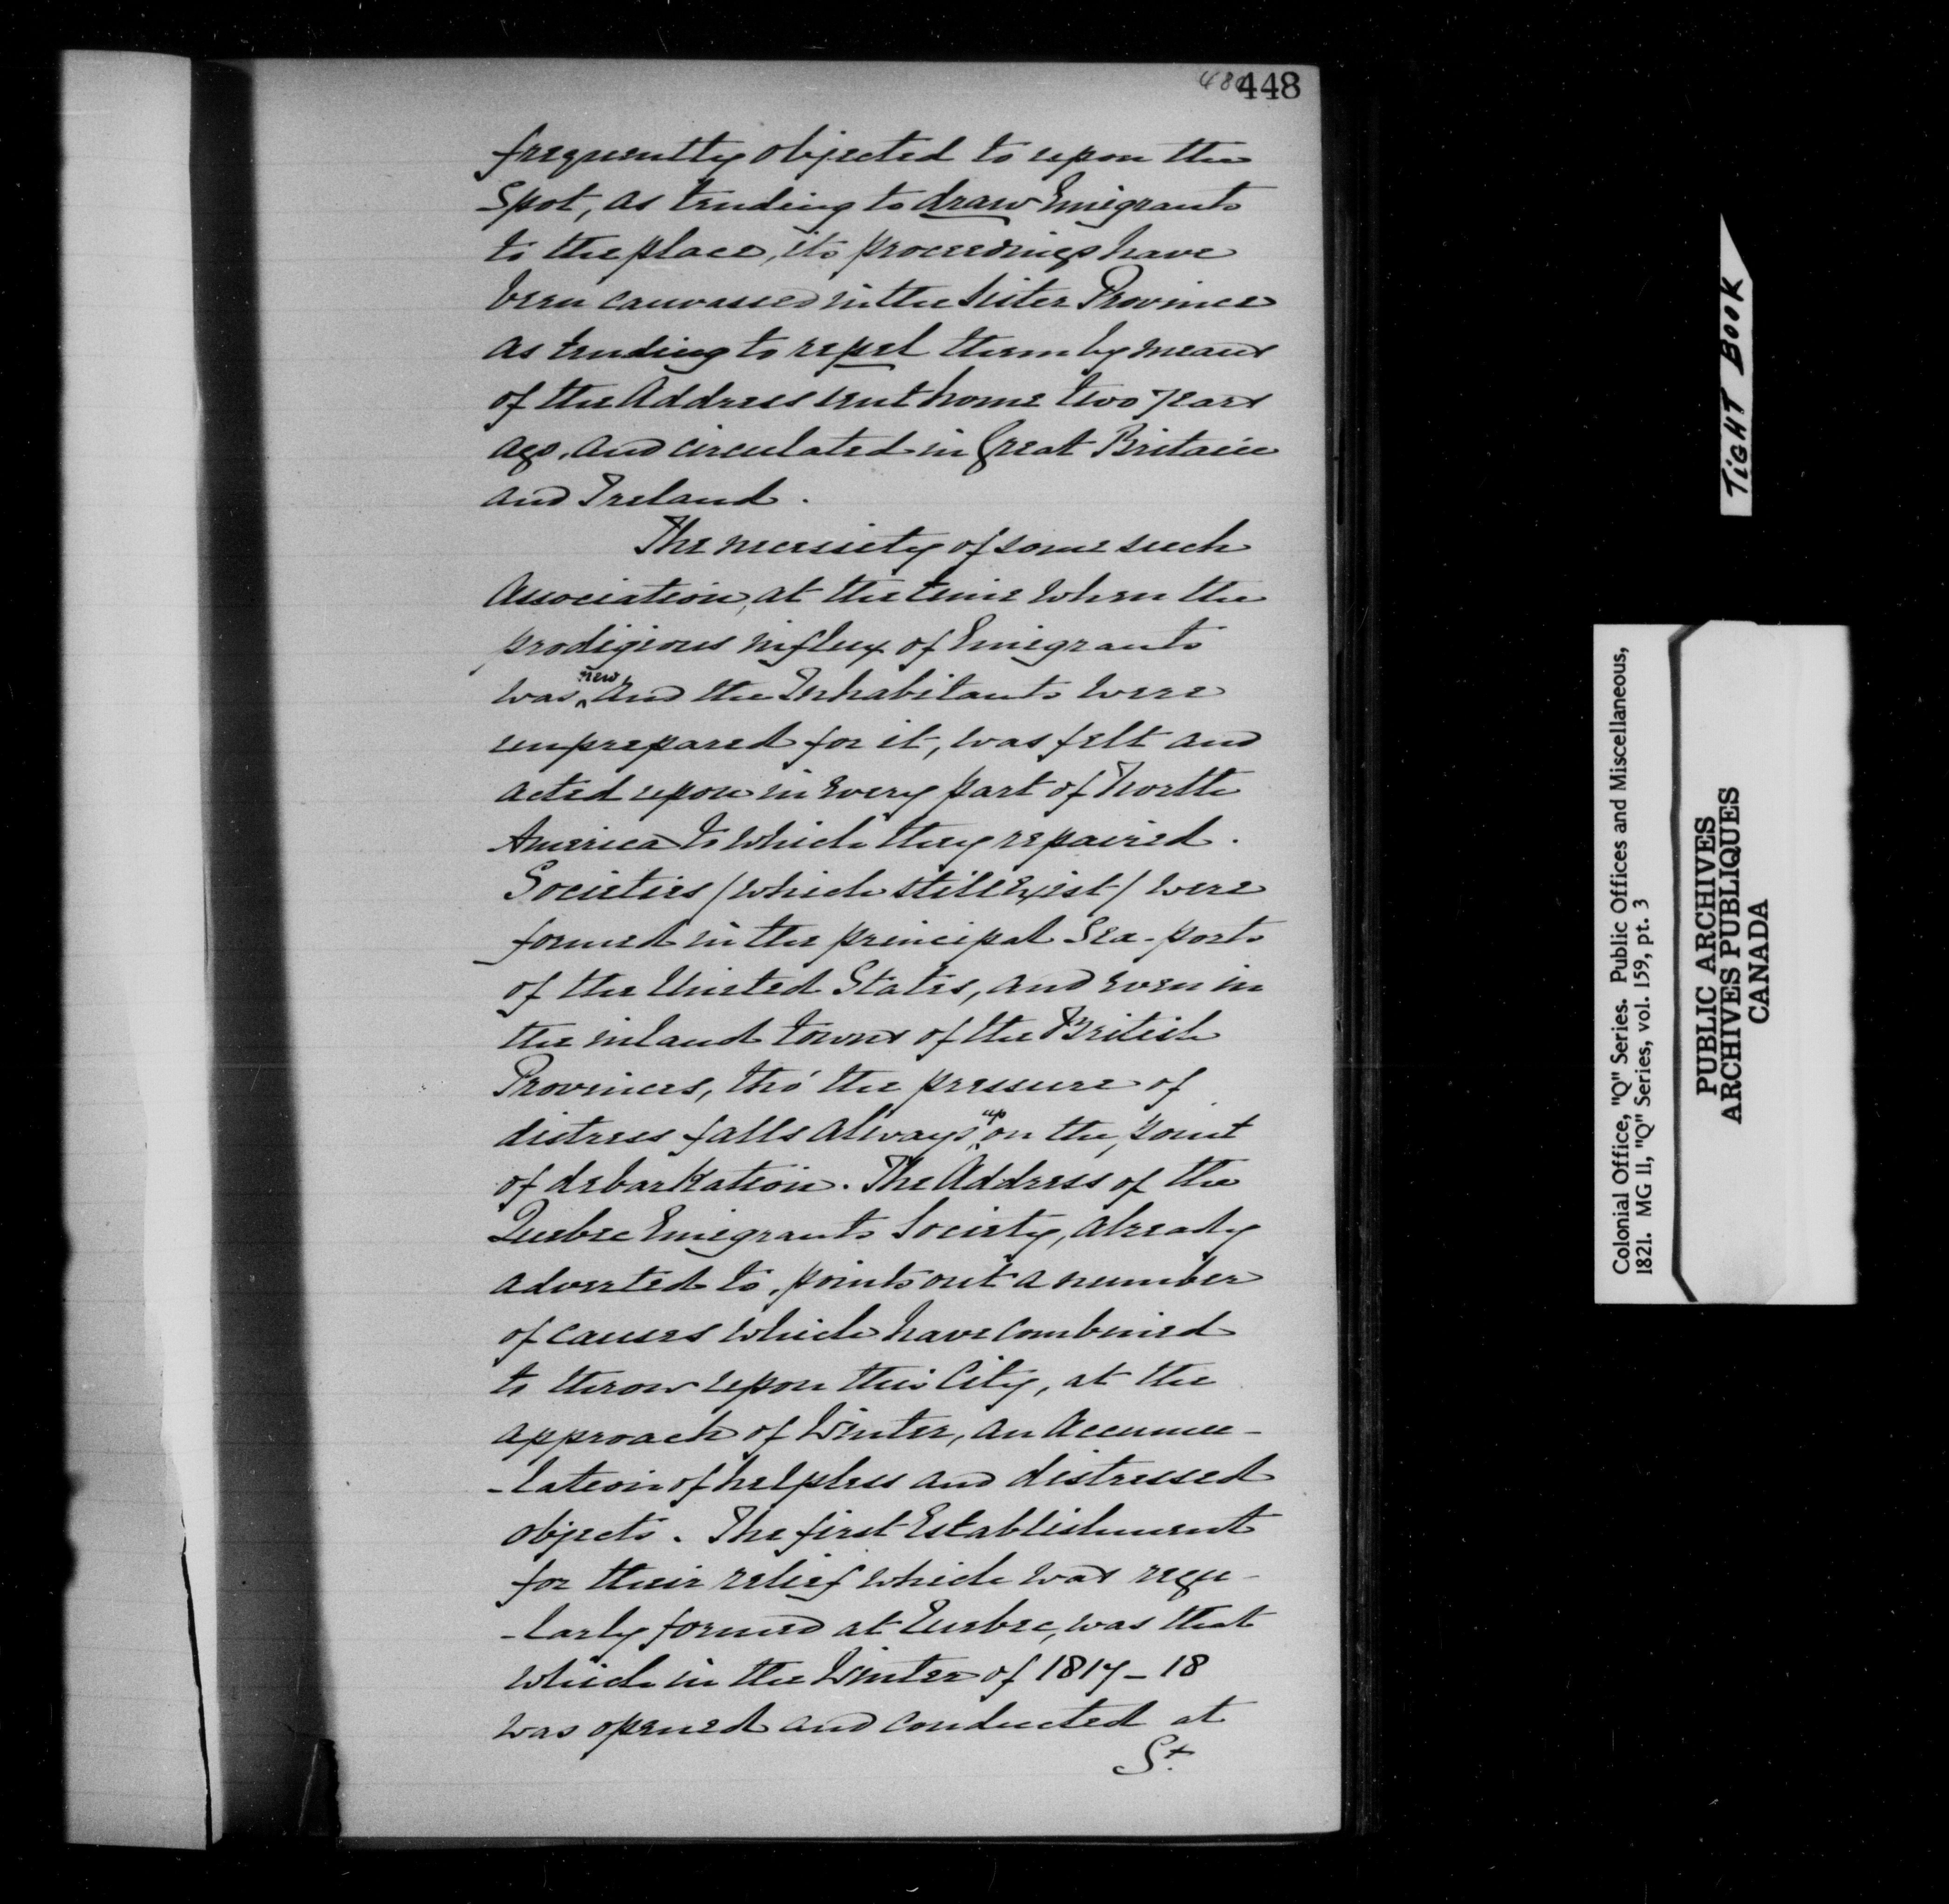 448
frequently objected to upon the
Spot, as tending to draw Emigrants
to the place, its proceedings have
been canvassed in the Sister Province
as tending to repel them by means
of the Address sent home two years
ago, and circulated in Great Britain
and Ireland.
The necessity of some such
Association, at the time when the
prodigious influx of Emigrants
was new and the Inhabitants were
unprepared for it, was felt and
acted upon in every part of North
America to which they repaired.
Societies / which still exist / were
formed in the principal Sea-ports
of the United States, and even in
the inland towns of the British
Provinces, tho' the pressure of
distress falls always upon the point
of debarkation. The Address of the
Quebec Emigrants Society, already
adverted to, points out a number
of causes which have combined
to throw upon this City, at the
approach of Winter, an accumu-
-lation of helpless and distressed
objects. The first Establishment
for their relief which was regu-
-larly formed at Quebec, was that
which in the Winter of 1817-18
was opened and conducted at
St.
TIGHT BOOK
Colonial Office, "Q" Series. Public Offices and Miscellaneous,
1821. MG 11, "Q" Series, vol. 159, pt. 3
PUBLIC ARCHIVES
ARCHIVES PUBLIQUES
CANADA